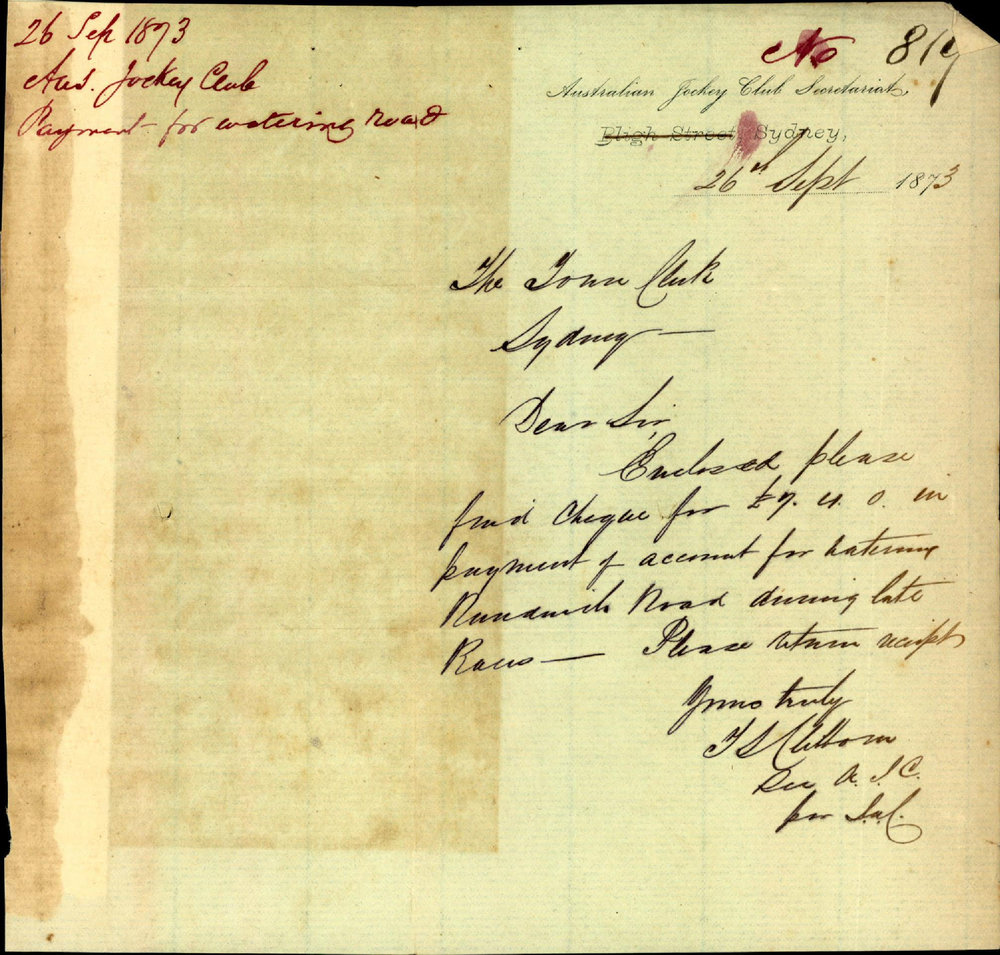 26 Sep 1873
Aus. Jockey Club
Payment for watering road
No 819
Australian Jockey Club Secretariat,
Bligh Street Sydney,
26th Sept 1873
The Town Clerk
Sydney —
Dear Sir,
Enclosed please
find cheque for £7. 4. 0. in
payment of account for watering
Randwick Road during late
Races — Please return receipt
Yours truly
T S Clibborn
Sec A. J. C.
per